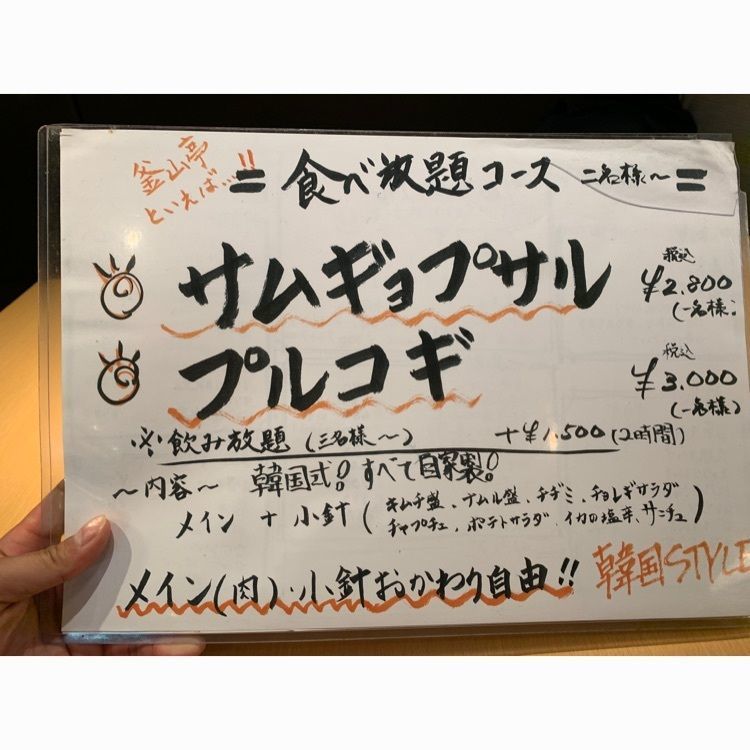 釜山亭
といえば…!!
= 食べ放題コース 二名様〜 =
サムギョプサル
税込
¥2.800
(一名様)
プルコギ
税込
¥3.000
(一名様)
※飲み放題(二名様〜) +¥1.500(2時間)
〜内容〜 韓国式!すべて自家製!
メイン + 小針(キムチ盛、ナムル盛、チヂミ、チョレギサラダ
チャプチェ、ポテトサラダ、イカの塩辛、サンチュ)
メイン(肉)・小針おかわり自由!!
韓国STYLE